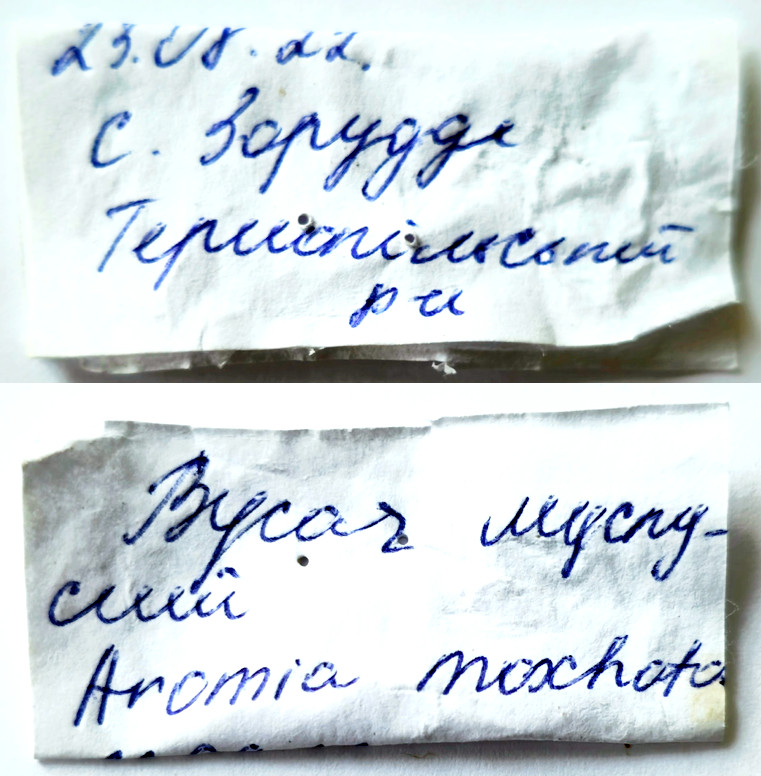 23.08.22.
с. Заруддя
Тернопільський
р-н
Вусач муску-
сний
Aromia moschata